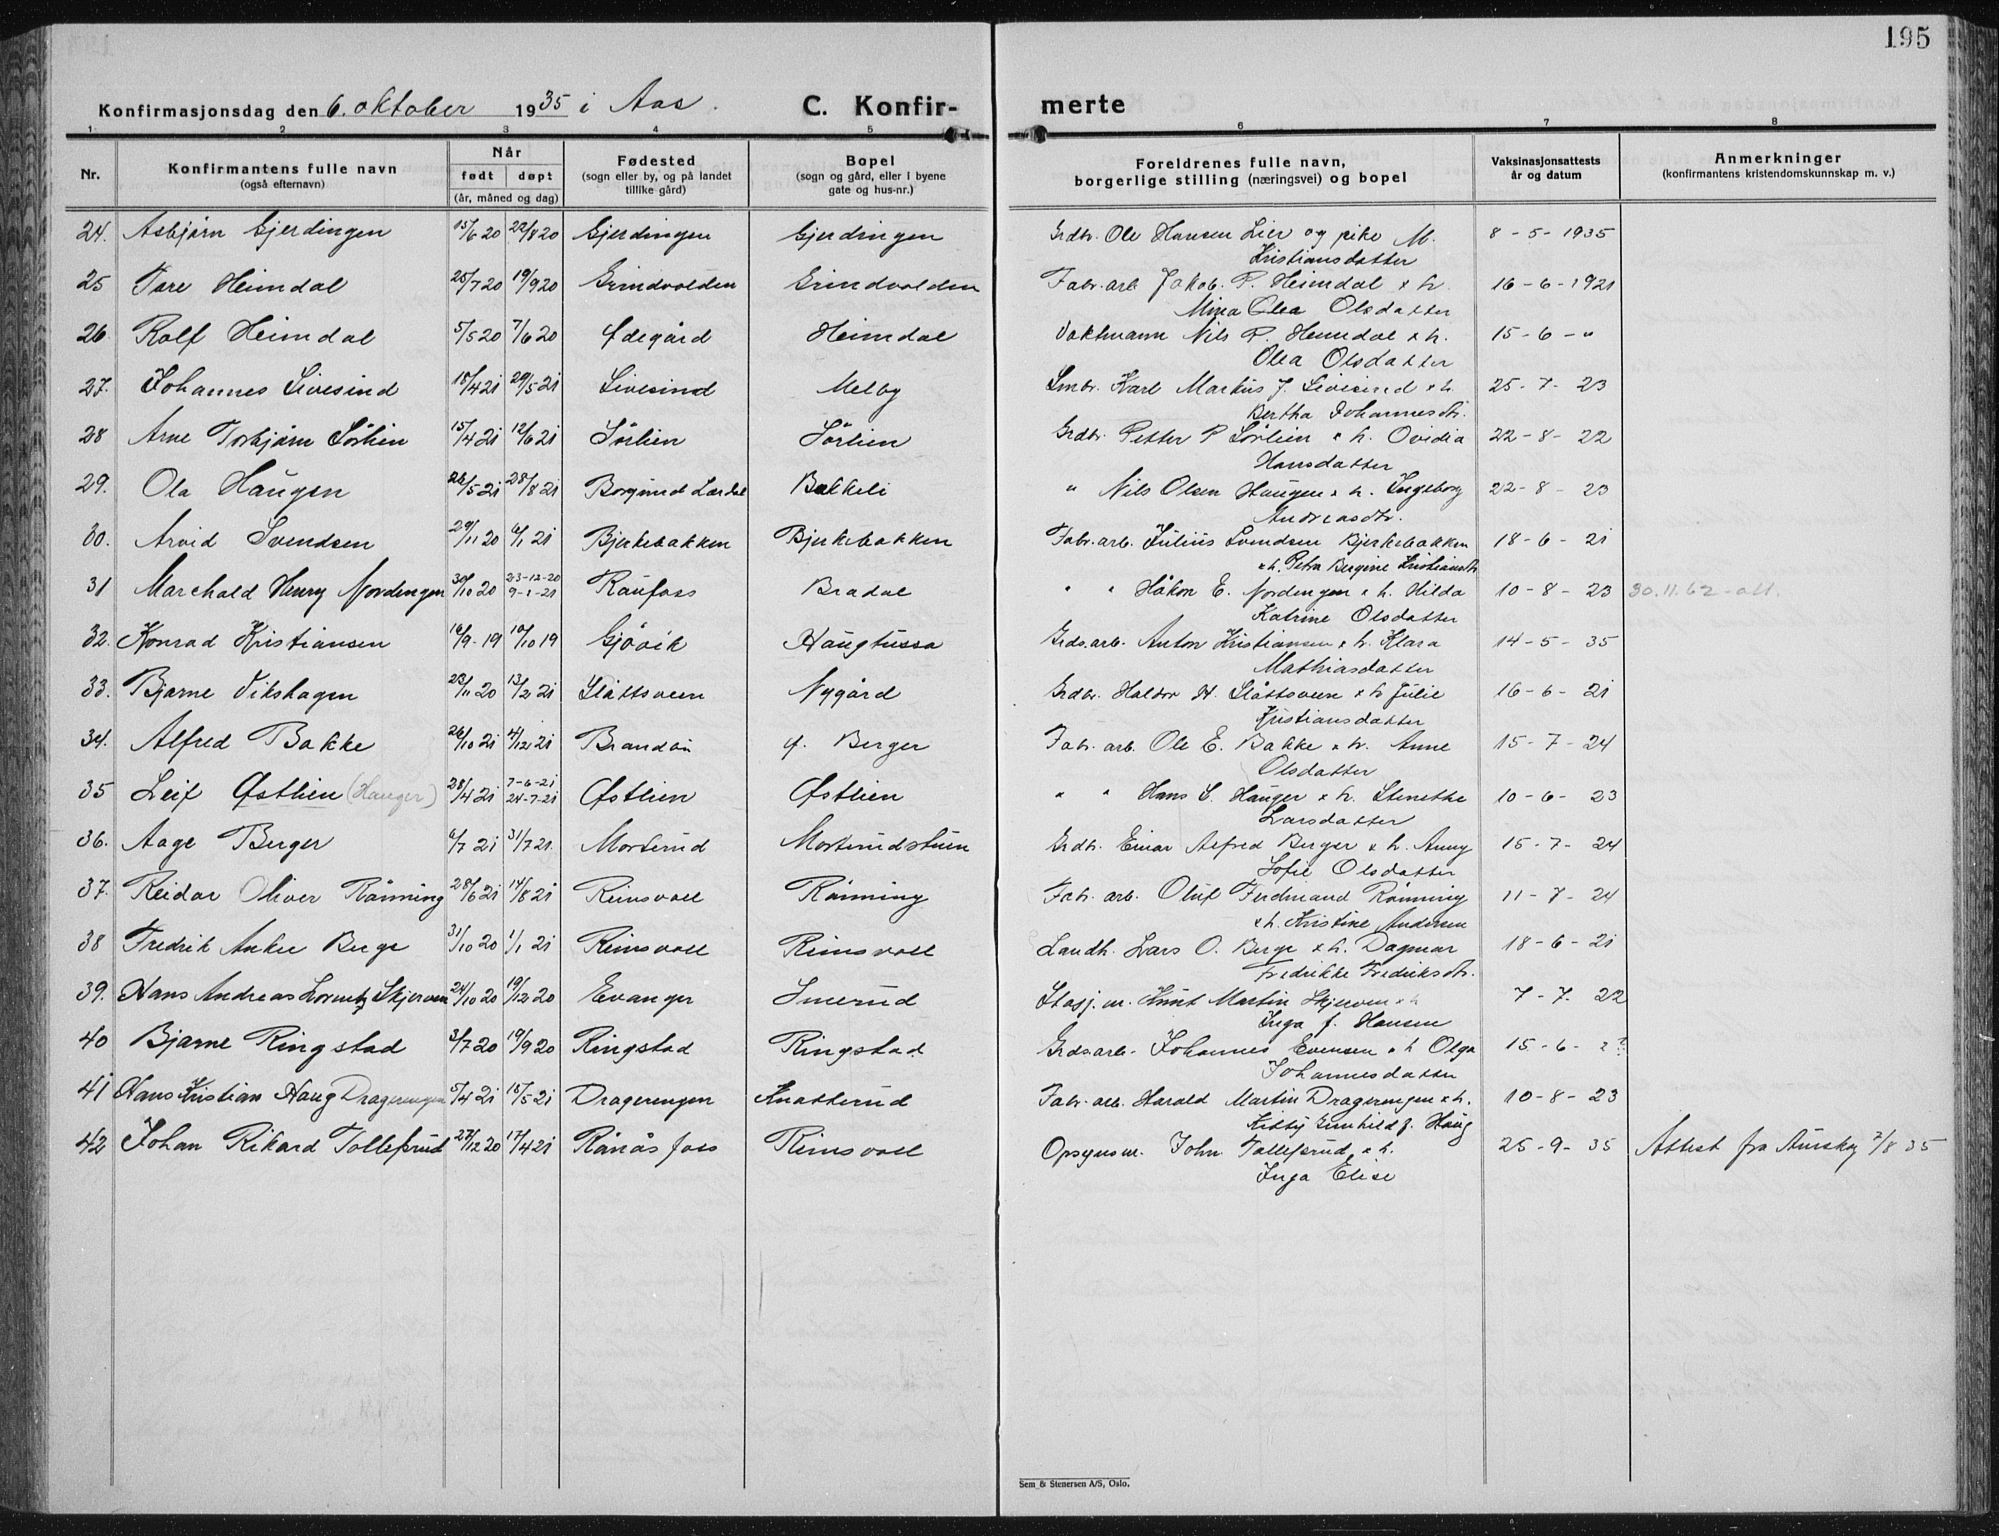 195
Konfirmasjonsdag den 6. oktober 1935 i Aas. C. Konfir- merte
1 2 3 4 5 6 7 8
Nr. Konfirmantens fulle navn (også efternavn) Når født døpt (år, måned og dag) Fødested (sogn eller by, og på landet tillike gård) Bopel (sogn og gård, eller i byene gate og hus-nr.) Foreldrenes fulle navn, borgerlige stilling (næringsvei) og bopel Vaksinasjonsattests år og datum Anmerkninger (konfirmantens kristendomskunnskap m. v.)
24. Asbjørn Gjerdingen 15/6 20 22/8 20 Gjerdingen Gjerdingen Grdbr. Ole Hansen Lier og pike M. 8-5-1935
Kristiansdatter
25 Tore Heimdal 25/7 20 19/9 20 Grindvolden Grindvolden Fabr. arb. Jakob P. Heimdal & h. 16-6-1921
Mina Olea Olsdatter
26. Rolf Heimdal 5/5 20 7/6 20 Ødegård Heimdal Vaktmann Nils P. Heimdal & h. 15-6-"
Olea Olsdatter
27. Johannes Livesind 18/4 21 29/5 21 Livesind Melby Smbr. Karl Markus J. Livesind & h. 25-7-23
Bertha Johannesdtr.
28 Arne Torbjørn Sørlien 15/4 21 12/6 21 Sørlien Sørlien Grdbr. Petter P Sørlien & h. Ovidia 22-8-22
Hansdatter
29. Ola Haugen 26/5 21 28/8 21 Borgund Lærdal Bakkeli " Nils Olsen Haugen & h. Ingeborg 22-8-23
Andreasdtr.
30. Arvid Svendsen 29/11 20 6/1 21 Bjerkebakken Bjerkebakken Fabr. arb. Julius Svendsen Bjerkebakken 18-6-21
& h. Petra Bergine Kristiansdtr.
31 Marchald Henry Nordengen 30/10 20 23-12-20 Raufoss Bradal " " Håkon E. Nordengen & h. Hilda 10-8-23 30.11.62 - att.
9-1-21 Katrine Olsdatter
32. Konrad Kristiansen 16/9-19 10/10 19 Gjøvik Haugtussa Grds.arb. Anton Kristiansen & h. Klara 14-5-35
Mathiasdatter
33. Bjarne Vikshagen 28/11 20 13/2 21 Slåttsveen Nygård Grdbr. Haldor H. Slåttsveen & h Julie 16-6-21
Kristiansdatter
34. Alfred Bakke 26/10 21 4/12 21 f. Berger Fabr. arb. Ole E. Bakke & h. Anne 15-7-24
Olsdatter
35 Leif Østlien (Hauger) 28/4 21 7-6-21 Østlien Østlien " " Hans L. Hauger & h. 10-6-23
24-7-21 Larsdatter
36. Aage Berger 6/7 21 31/7 21 Morterud Morterudstuen Grdbr. Einar Alfred Berger & h. Anny 15-7-24
Sofie Olsdatter
37. Reidar Oliver Rønning 28/6 21 14/8 21 Reinsvoll Rønning Fabr. arb. Oluf Ferdinand Rønning 11-7-24
& h. Kristine Andersen
38 Fredrik Anker Berge 31/10 20 1/1 21 Reinsvoll Reinsvoll Landh. Lars O. Berge & h. Dagmar 18-6-21
Fredrikke Fredriksdtr.
39. Hans Andreas Lorentz Skjerven 24/10 20 19/12 20 Evanger Smerud Stasj.m. Knut Martin Skjerven & h 7-7-22
Inga f. Hansen
40 Bjarne Ringstad 3/7 20 19/9 20 Ringstad Ringstad Grds.arb. Johannes Evensen & h Olga 15-6-2
Johannesdatter
41 Hans Kristian Haug Dragerengen 5/4 21 15/5 21 Dragerengen Knatterud Fabr. arb. Harald Martin Dragerengen & h. 10-8-23
Kitty Gunhild f. Haug
42 Johan Rikard Tollefsrud 27/12 20 17/4 21 Rånåsfoss Reinsvoll Opsynsm. John Tollefsrud & h. 25-9-35 Attest fra Aurskog 7/8 35
Inga Elise
Sem & Stenersen A/S, Oslo.